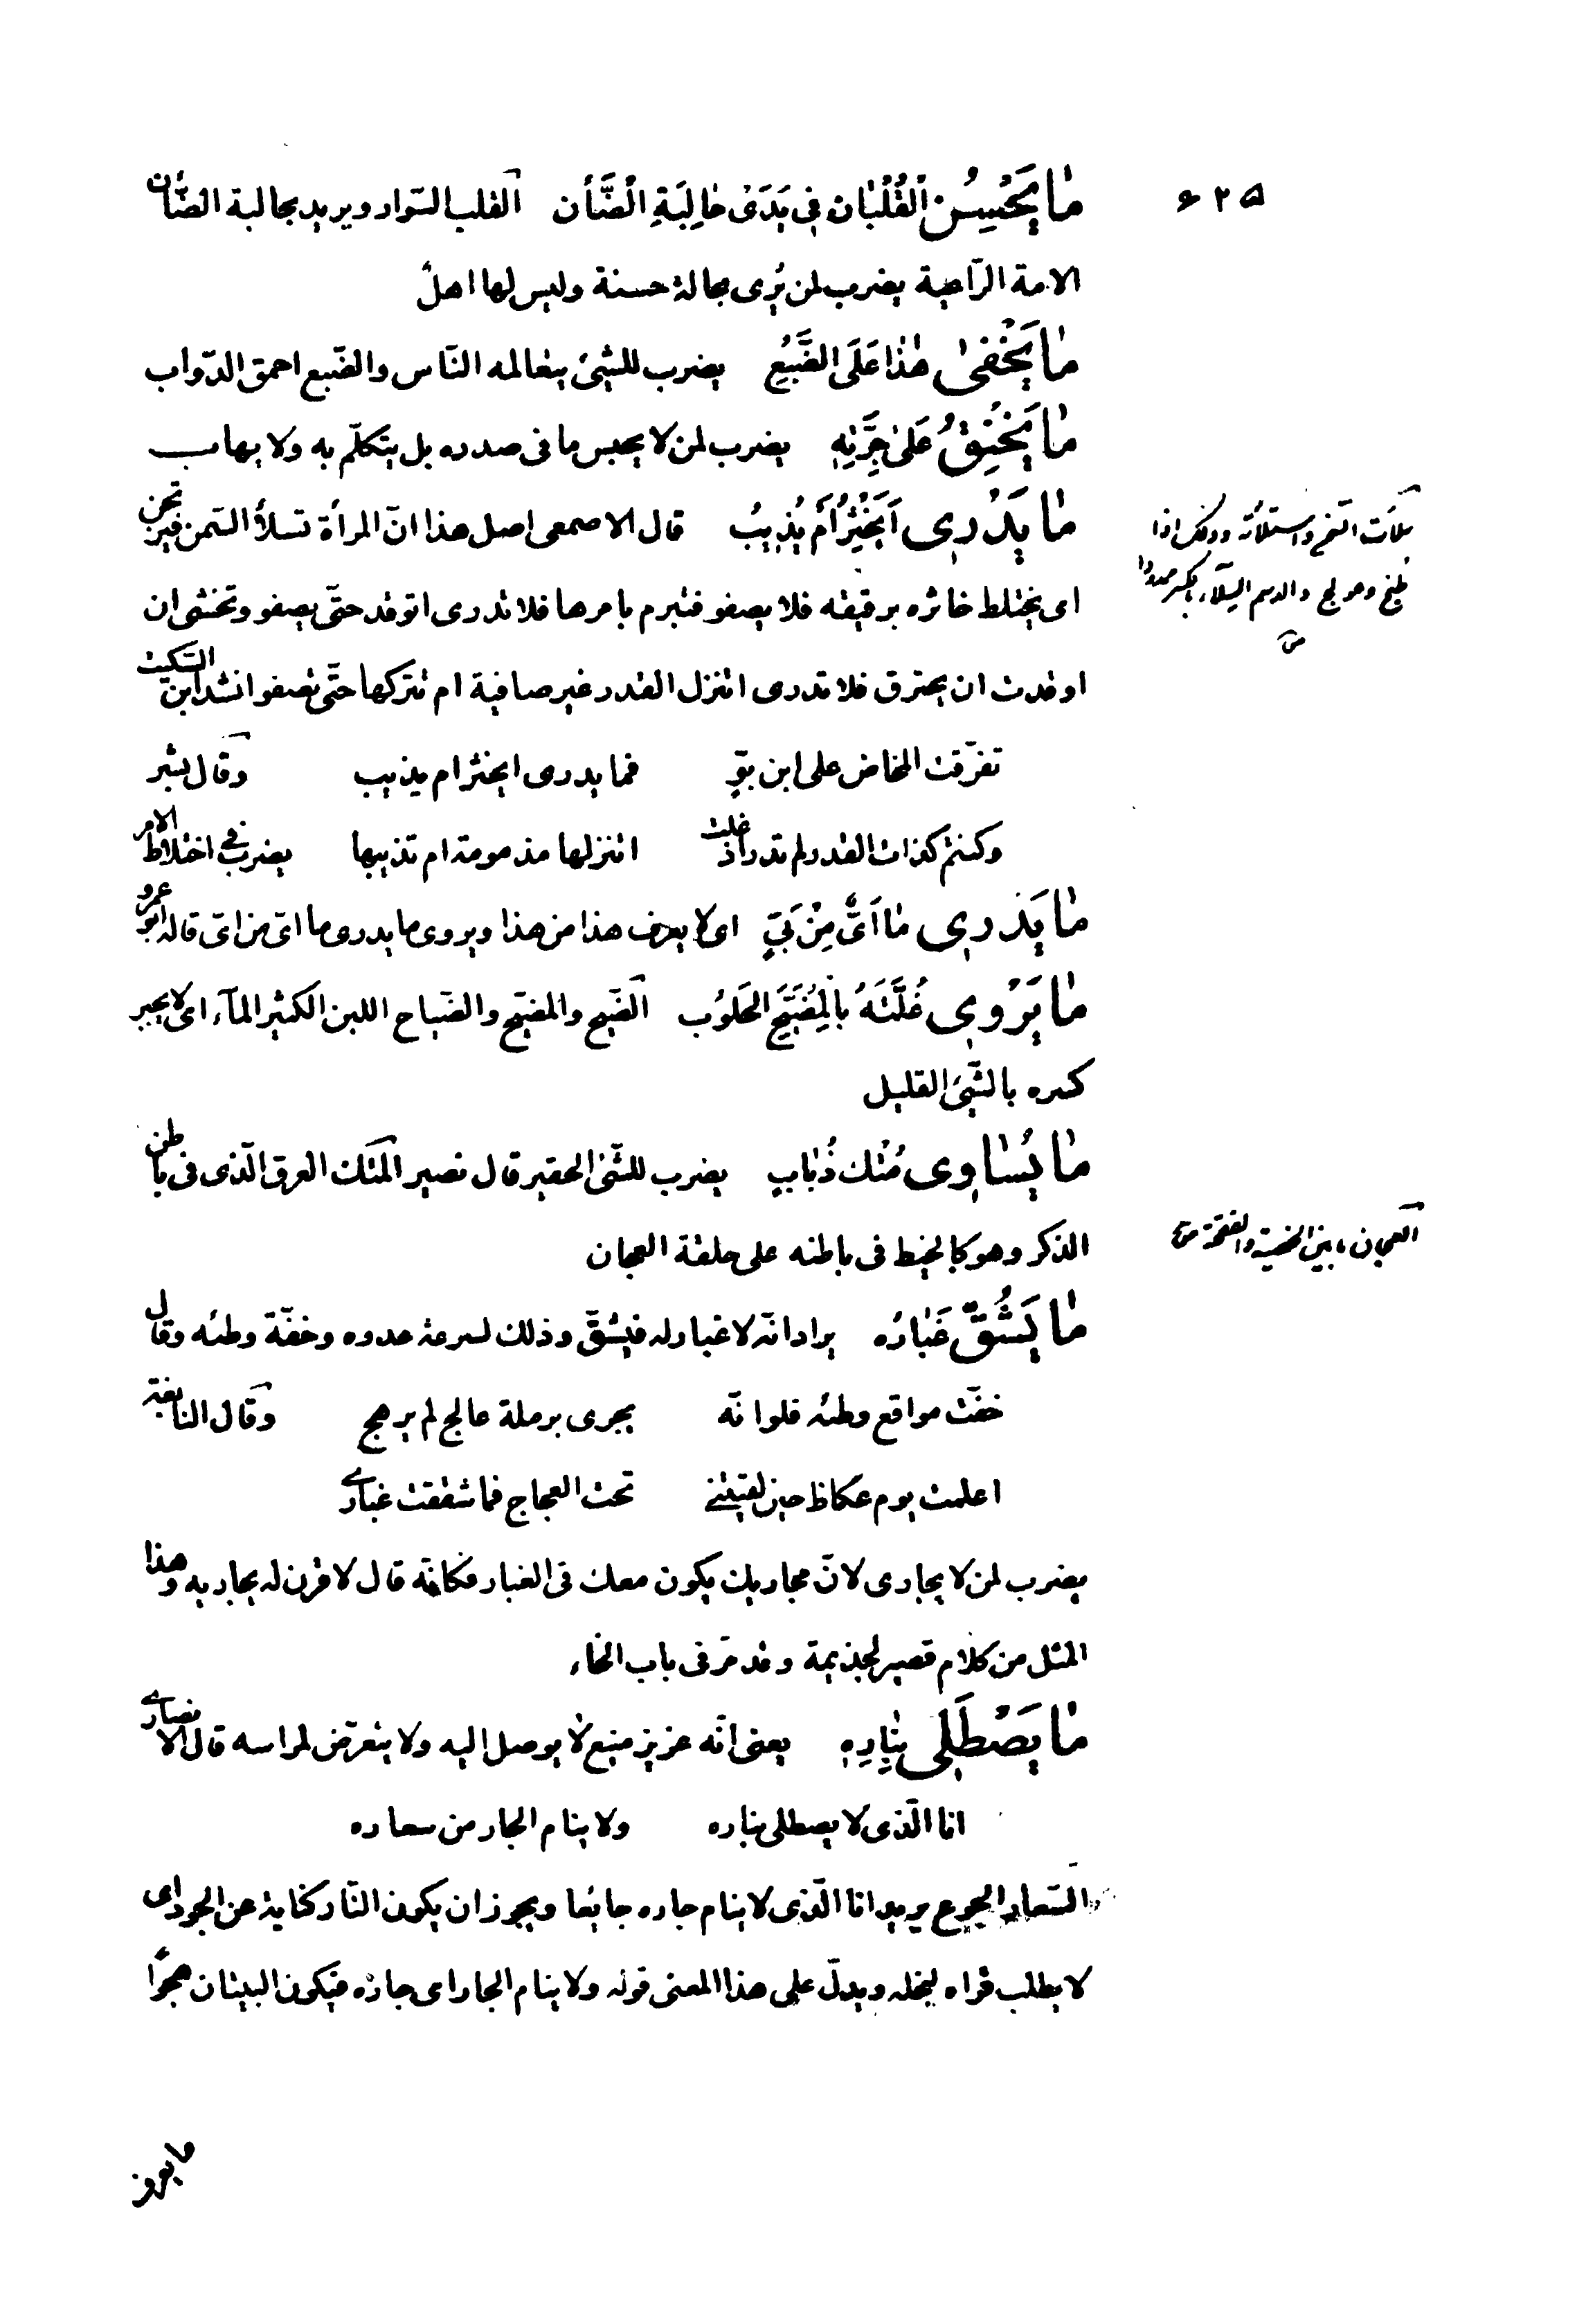 ۶۲۵
مٰا يَحْسِنُ الْقُلْبٰانِ فِى يَدَىْ حٰالِبَةِ الضَّأن القلب السّوار ويريد بحالبة الضّأن
الامة الرّاعية يضرب لمن يُرى بحالة حسنة وليس لها اهل
مٰا يَخْفىٰ هٰذٰا عَلَى الضَّبُعِ يضرب للشّىئ يتعالمه النّاس والضّبع احمق الدّواب
مٰا يَخْنِقُ عَلىٰ جِرَّتِهِ يضرب لمن لا يحبس ما فى صدره بل يتكلّم به ولا يهاب
مٰا يَدْرِى اَيَخْثُرُ اَمْ يُذِيبُ قال الاصمعى اصل هذا انّ المرأة تسلأ السّمن فيرتجن
اى يختلط خاثره برقيقه فلا يصفو فتبرم بامرها فلا تدرى اتوقد حتّى يصفو وتخشى ان
اوقدت ان يحترق فلا تدرى اتنزل القدر غير صافية ام تتركها حتّى تصفو انشد ابن السّكيت
تفرّقت المخاض على ابن بوّ فما يدرى ايخثر ام يذيب وقال بشر
وكنتم كذات القدر لم تدر اذ غلت اتنزلها مذمومة ام تذيبها يضرب فى اختلاط الامر
مٰا يَدْرِى مٰا اَىٌّ مِنْ بَىٍّ اى لا يعرف هذا من هذا ويروى ما يدرى ما اىّ من اىّ قاله ابو عمرو
مٰا يَرْوِى غُلَّتَهُ بِالْمُضَيَّحِ الحَلوُب الضّيح والمضيّح والضّياح اللبن الكثير المآء اى لا يجبر
كسره بالشّىئ القليل
مٰا يُسٰاوِى مُتْك ذُبٰابٍ يضرب للشّىئ الحقير قال نصير المتك العرق الّذى فى باطن
الذكر وهو كالخيط فى باطنه على حلقة العجان
مٰا يَشُقُّ غُبٰارُه يراد انّه لا غبار له فيشقّ وذلك لسرعة عدوه وخفّة وطئه وقال
خفّت مواقع وطئه فلوانّه يجرى برملة عالج لم يرهج وقال النابغة
اعلمت يوم عكاظ حين لقيتنى تحت العجاج فما شققت غبارى
يضرب لمن لا يجارى لانّ مجاريك يكون معك فى الغبار فكانّه قال لا قرن له يجاريه وهذا
المثل من كلام قصير لجذيمة وقد مرّ فى باب الخاء
مٰا يُصْطَلىٰ بِنٰارِهِ يعنى انّه عزيز منيع لا يوصل اليه ولا يتعرّض لمراسه قال الانصارى
انا الّذى لا يصطلى بناره ولا ينام الجار من سعاره
السّعار الجوع يريد انا الّذى لا ينام جاره جايعا ويجوز ان يكون النّار كناية عن الجود اى
لا يطلب قراه لبخله ويدلّ على هذا المعنى قوله ولا ينام الجار اى جاره فيكون البيتان هجوًا
سلأت السّمن واستلأته وذلك اذا
طبخ وعولج والاسم السلآء بالكسر ممدودا
ص
العجان ما بين الخصية والفقحة ص